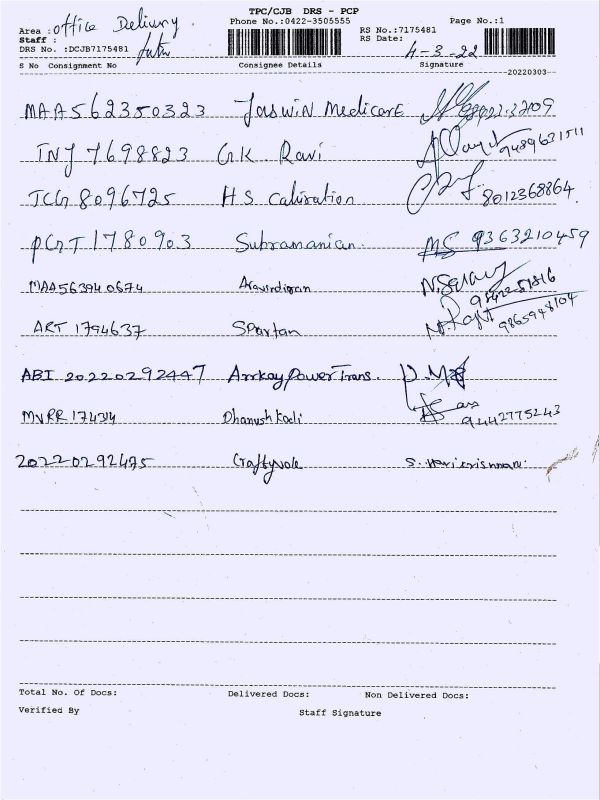 TPC/CJB DRS - PCP
Area : Office Delivery Phone No.:0422-3505555 RS No.:7175481 Page No.:1
Staff : RS Date: 4-3-22
DRS No. :DCJB7175481
S No Consignment No Consignee Details Signature
20220303
MAA562350323 Jaswin Medicare
TNJ 7698823 G.K Ravi 9489631511
TCG 8096725 H S Calibration 8012368864
PGT 1780903 Subramanian. MS 9363210459
MAA563940674 Aravindhan
ART 1794637 Spartan 9865948104
ABI 20220292447 Arrkay Power Trans.
MVRR 17434 Dhanush kodi 9442775243
20220292495 Craftyvale S. Harikrishnan
Total No. Of Docs: Delivered Docs: Non Delivered Docs:
Verified By Staff Signature